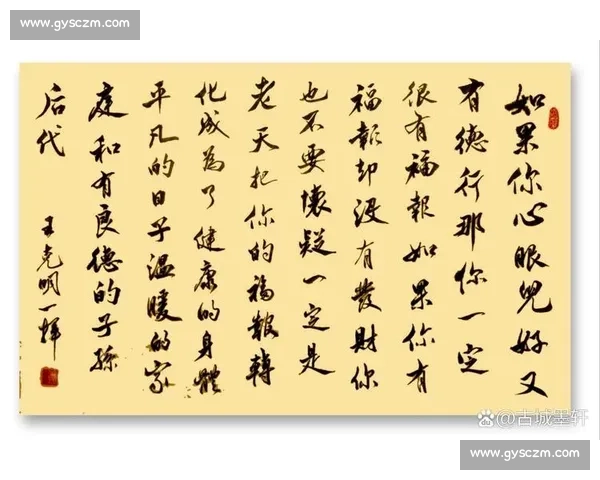 www.gysczm.com
如果你心眼兒好又
有德行那你一定
很有福報如果你有
福報却没有發財你
也不要懷疑一定是
老天把你的福報轉
化成為了健康的身體
平凡的日子温暖的家
庭和有良德的子孫
后代
王克明一揮
@古城墨轩
www.gysczm.com